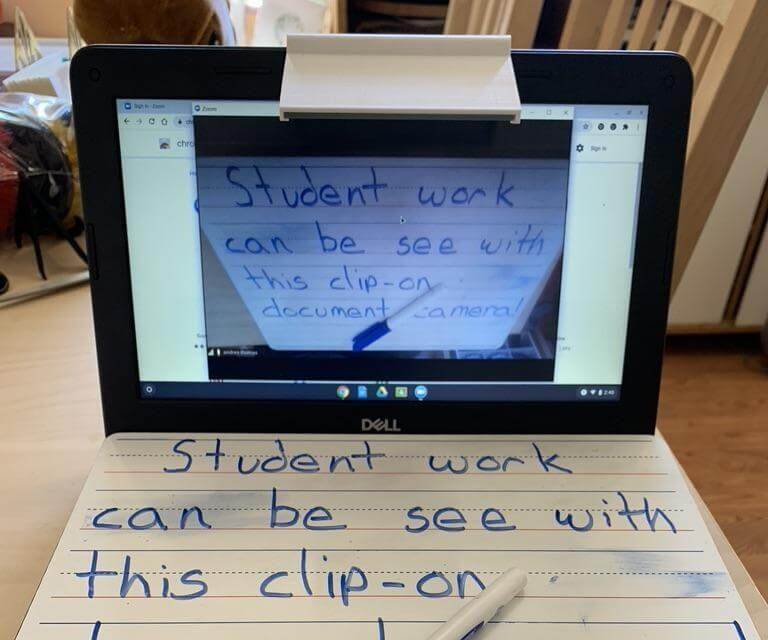 Sign In - Zoom
Zoom
chro
Sign in
Student work
can be see with
this clip-on
document camera!
2:40
DELL
Student work
can be see with
this clip-on